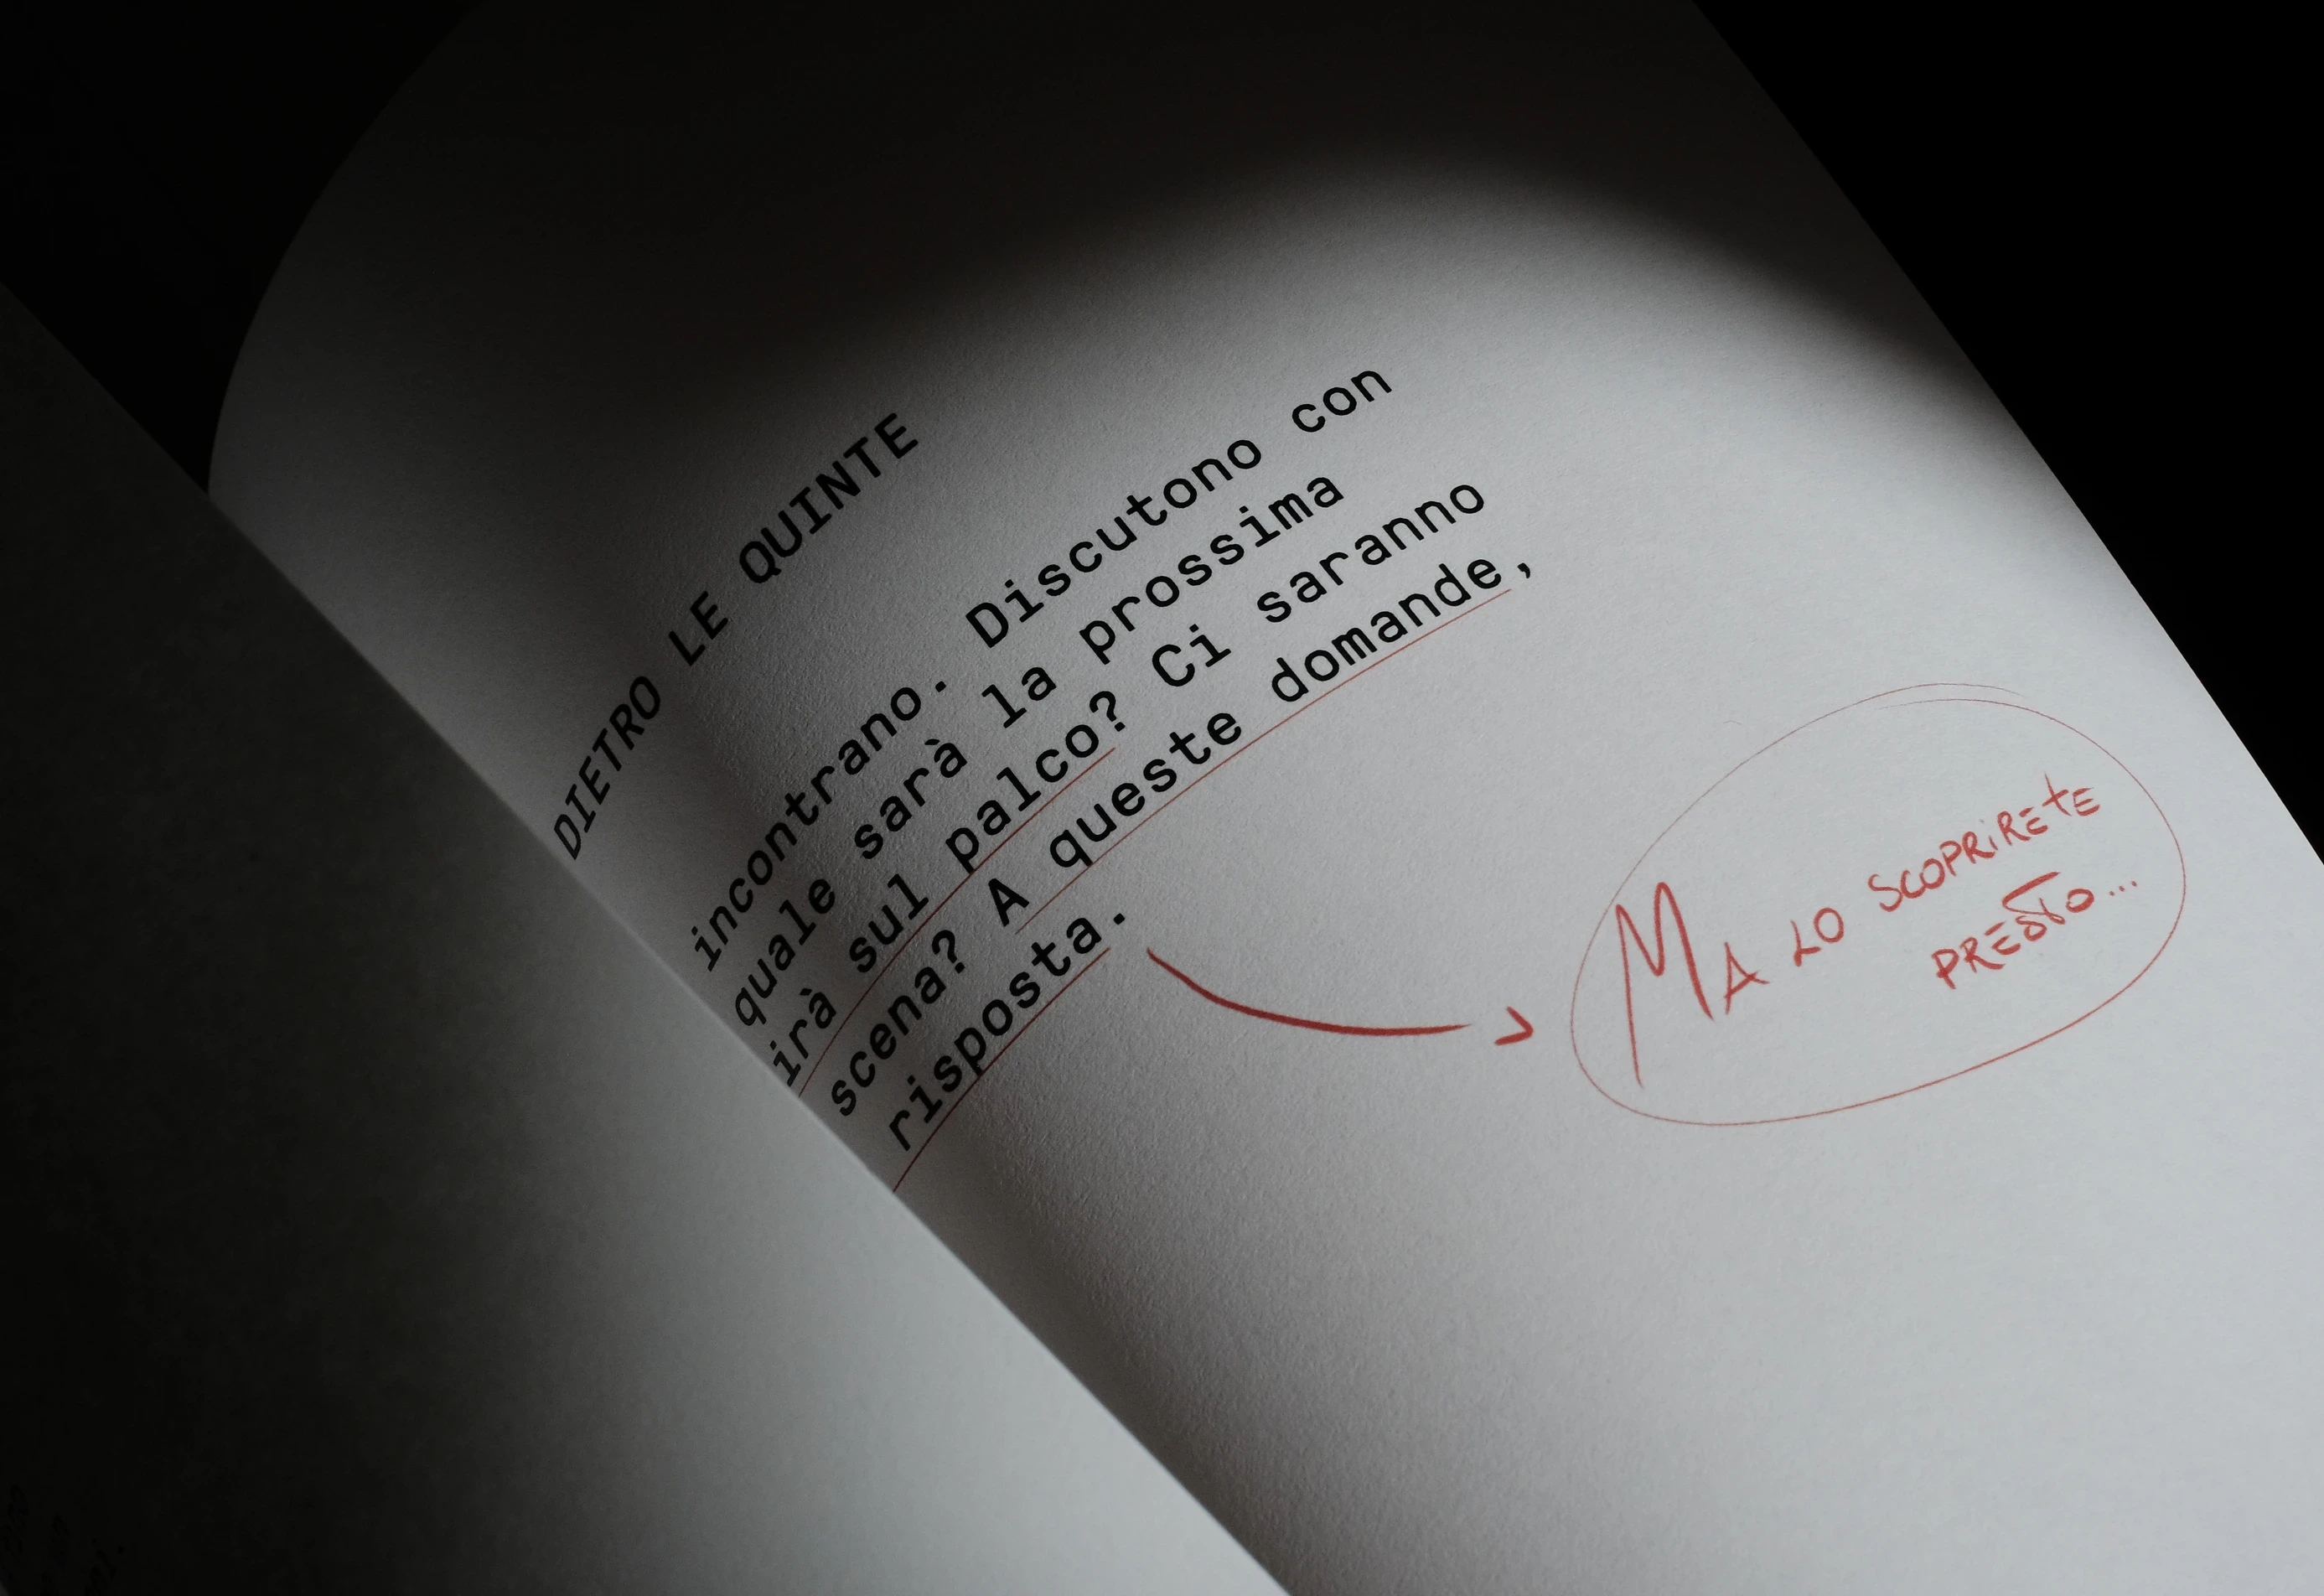 DIETRO LE QUINTE
incontrano. Discutono con
quale sarà la prossima
irà sul palco? Ci saranno
scena? A queste domande,
risposta.
MA LO SCOPRIRETE
PRESTO...